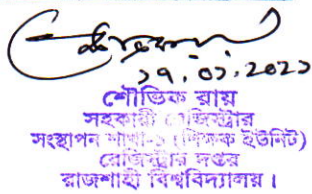 ১৭.০১.২০২১
শৌভিক রায়
সহকারী রেজিস্ট্রার
সংস্থাপন শাখা-১ (শিক্ষক ইউনিট)
রেজিস্ট্রার দপ্তর
রাজশাহী বিশ্ববিদ্যালয়।